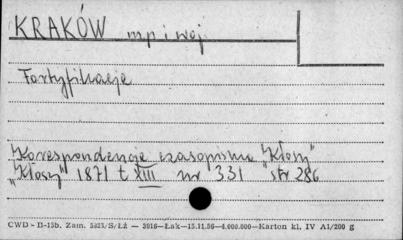 KRAKÓW mp i woj
Fortyfikacje
Korespondencje czasopisma "Kłosy"
"Kłosy" 1871 t XIII nr 331 str 286
CWD - D-15b. Zam. 5023/S/Łż — 3016—Łak—15.11.56—4.000.000—Karton kl. IV A1/200 g